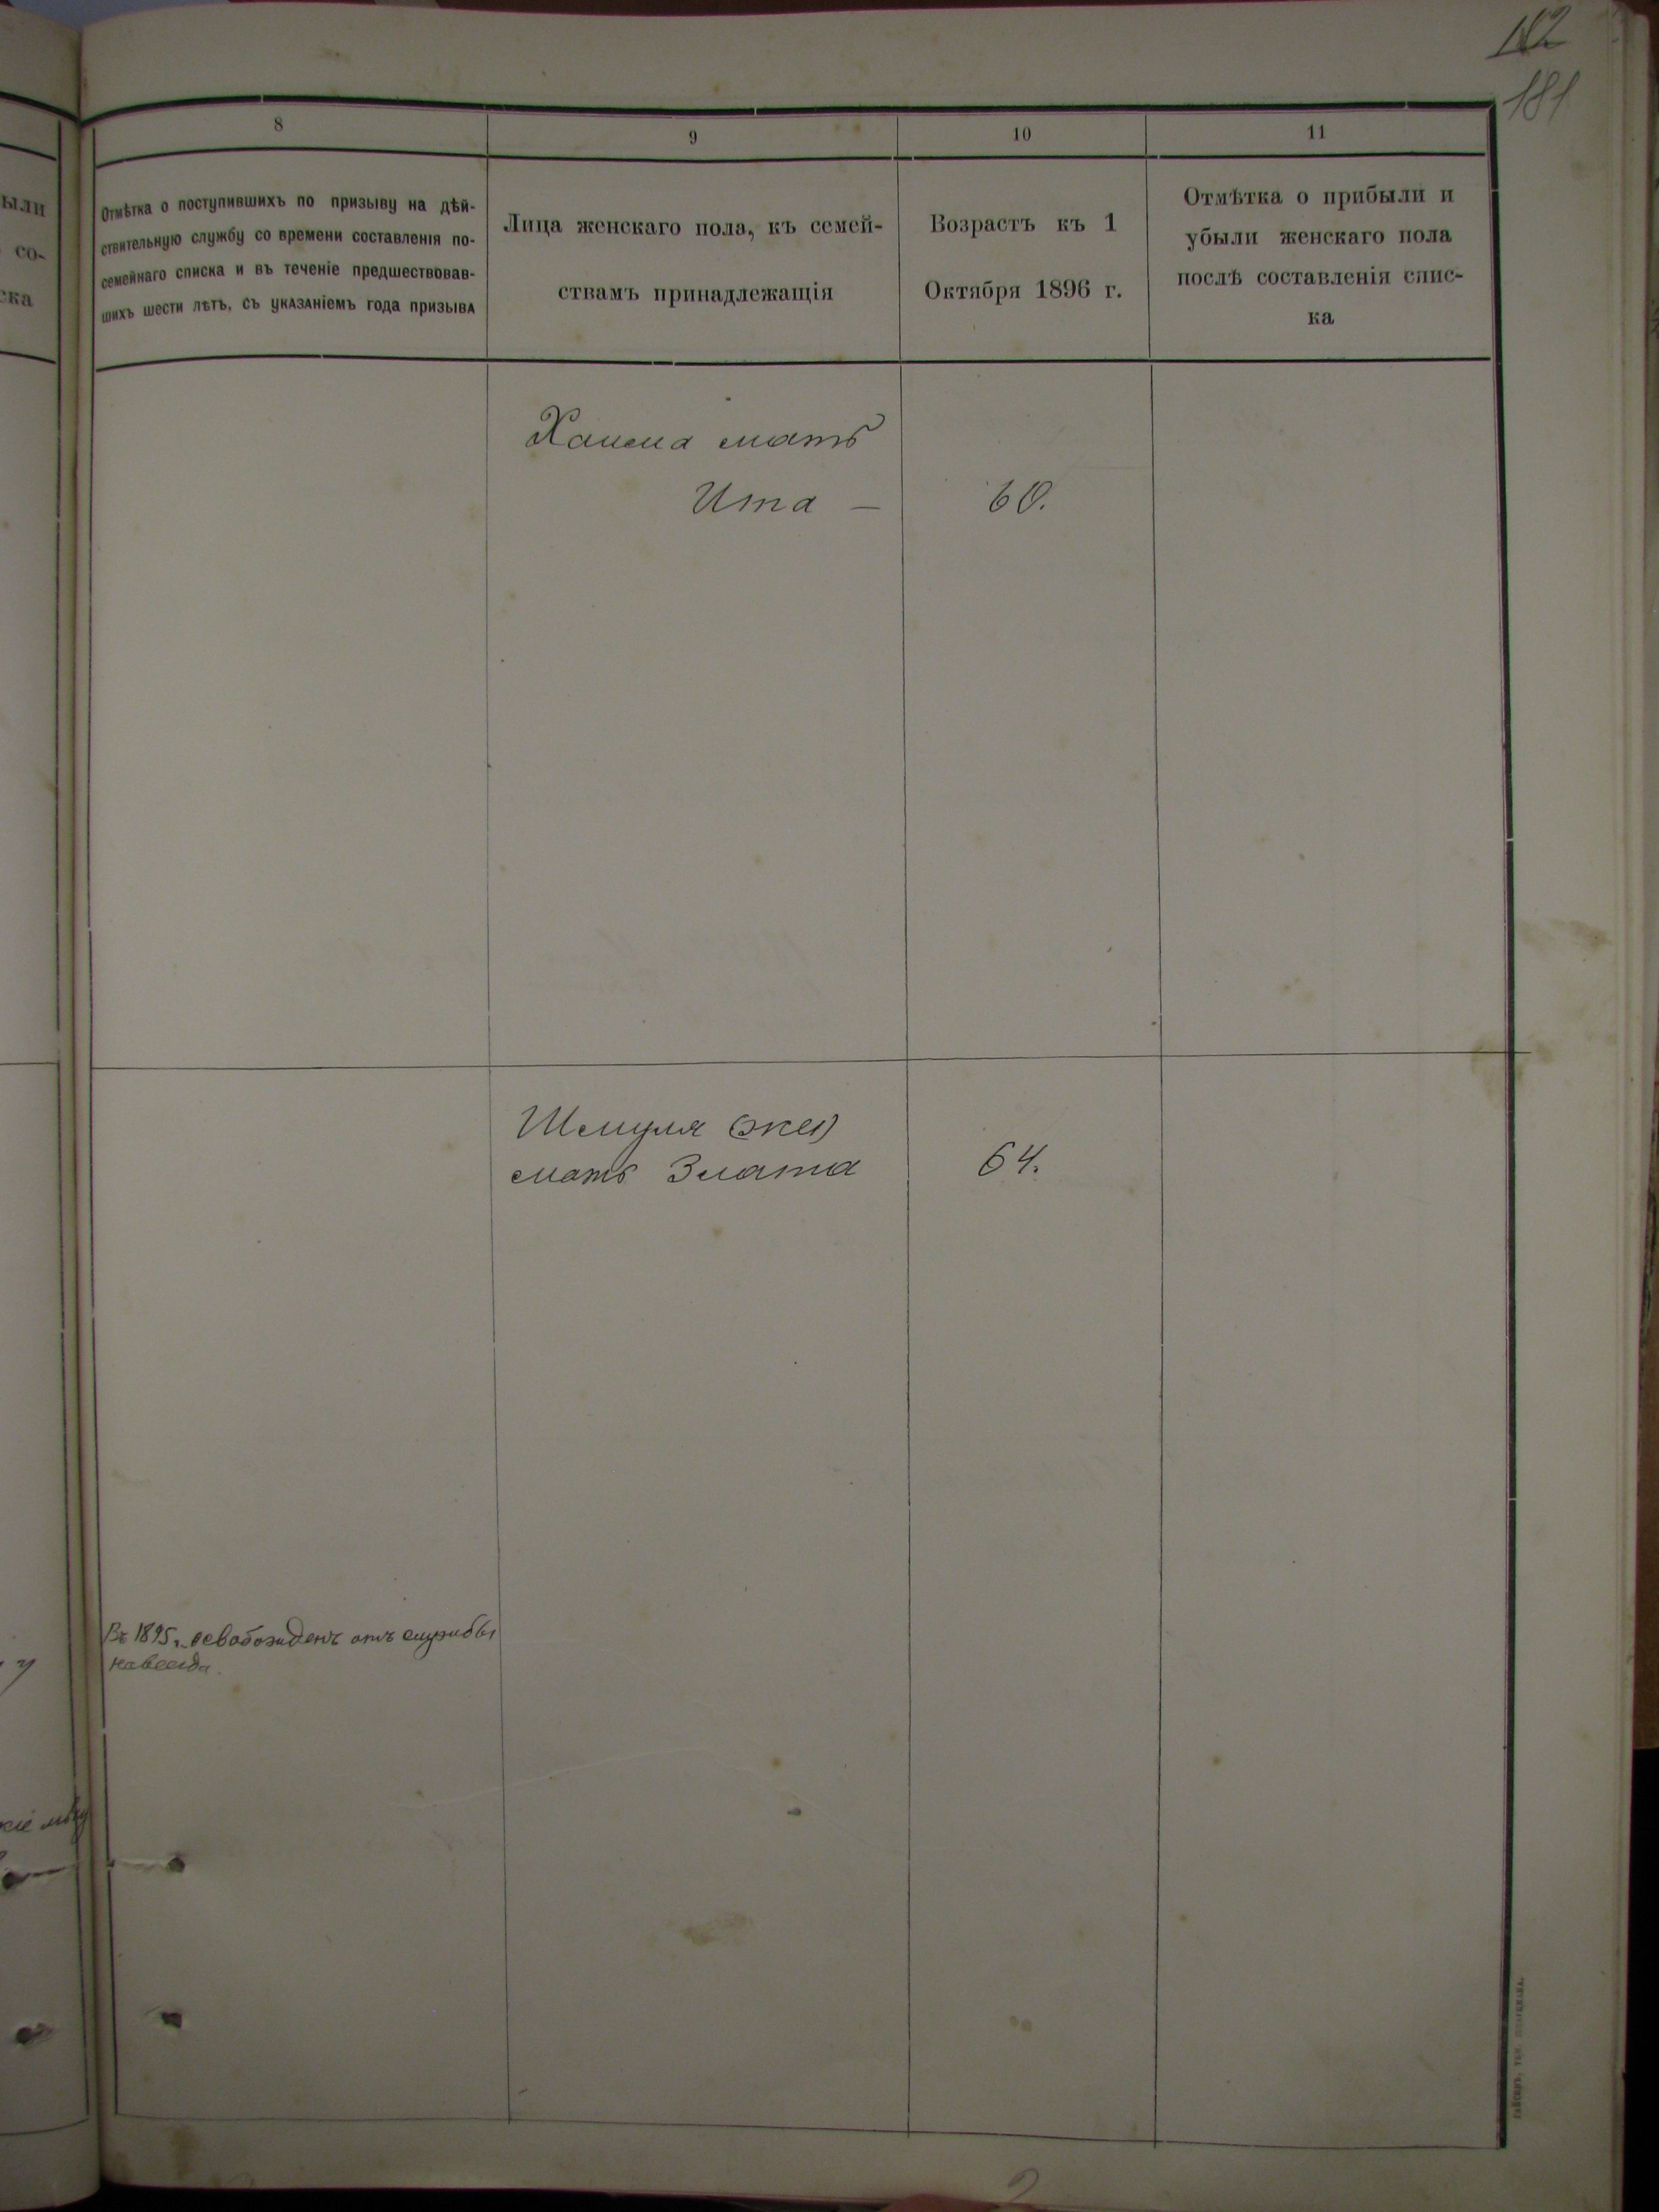 182
181
8
9
10
11
Отмѣтка о поступившихъ по призыву на дѣй-
ствительную службу со времени составленія по-
семейнаго списка и въ теченіе предшествовав-
шихъ шести лѣтъ, съ указаніемъ года призыва
Лица женскаго пола, къ семей-
ствамъ принадлежащія
Возрастъ къ 1
Октября 1896 г.
Отмѣтка о прибыли и
убыли женскаго пола
послѣ составленія спис-
ка
ыли
со-
ска
мать
Ита —
60.
Шмуля
мать Злата
64.
Въ 1895 г. освобожденъ отъ службы
навсегда.